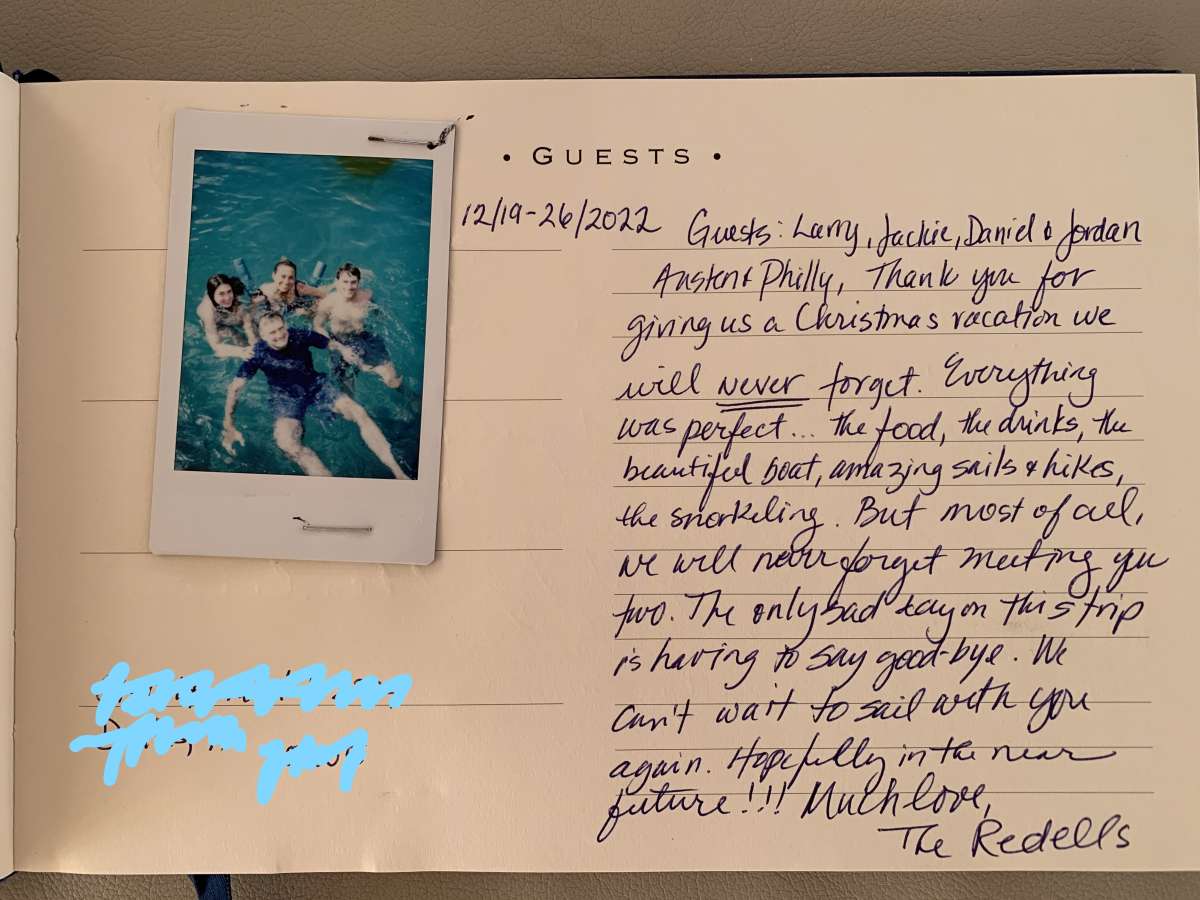 • GUESTS •
12/19-26/2022 Guests: Larry, Jackie, Daniel & Jordan
Austen & Philly, Thank you for
giving us a Christmas vacation we
will never forget. Everything
was perfect... the food, the drinks, the
beautiful boat, amazing sails & hikes,
the snorkeling. But most of all,
we will never forget meeting you
two. The only sad day on this trip
is having to say good-bye. We
can't wait to sail with you
again. Hopefully in the near
future!!! Much love,
The Redells